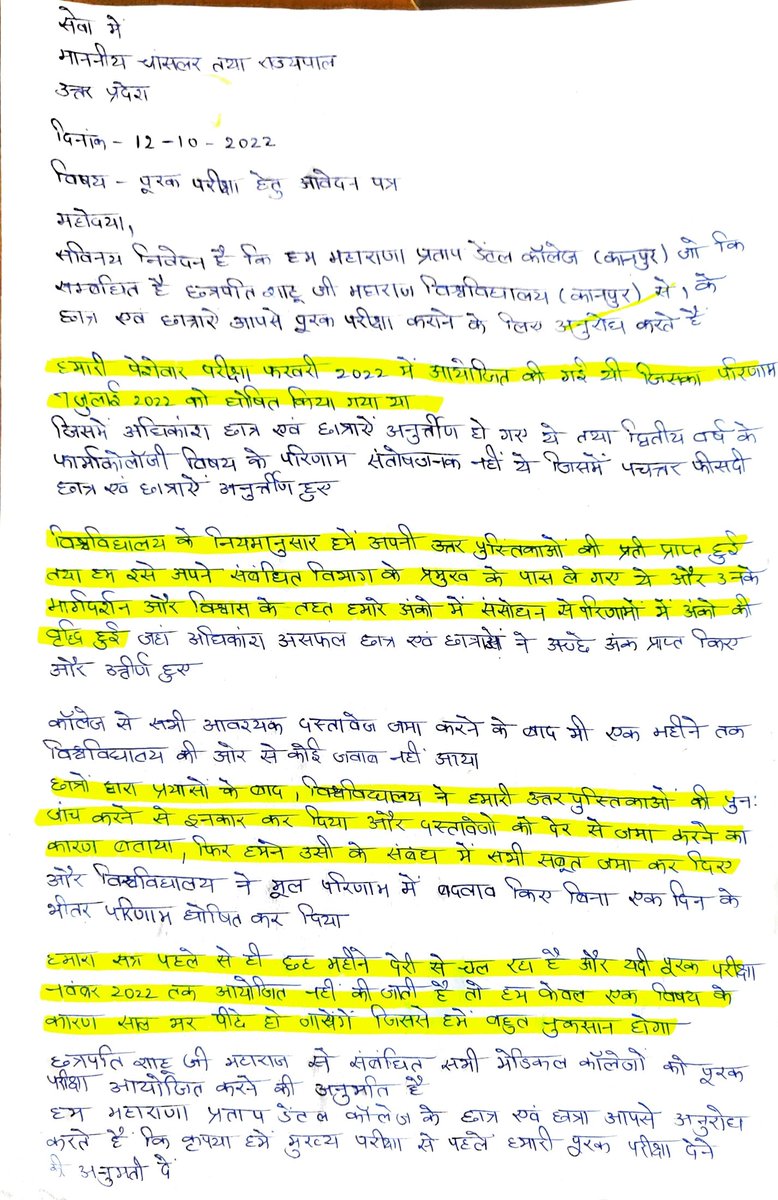 सेवा में
माननीय चांसलर तथा राज्यपाल
उत्तर प्रदेश
दिनांक - 12-10-2022
विषय - पूरक परीक्षा हेतु आवेदन पत्र
महोदया,
सविनय निवेदन है कि हम महाराणा प्रताप डेंटल कॉलेज (कानपुर) जो कि
सम्बंधित है छत्रपति शाहू जी महाराज विश्वविद्यालय (कानपुर) से, के
छात्र एवं छात्राऐं आपसे पूरक परीक्षा कराने के लिए अनुरोध करते है
हमारी पेशेवार परीक्षा फरवरी 2022 में आयोजित की गई थी जिसका परिणाम
7 जुलाई 2022 को घोषित किया गया था
जिसमें अधिकांश छात्र एवं छात्राऐं अनुर्त्तीण हो गए थे तथा द्वितीय वर्ष के
फार्माकोलॉजी विषय के परिणाम संतोषजनक नहीं थे जिसमें पचत्तर फीसदी
छात्र एवं छात्राऐं अनुर्त्तीण हुए
विश्वविद्यालय के नियमानुसार हमें अपनी उत्तर पुस्तिकाओं की प्रती प्राप्त हुई
तथा हम इसे अपने संबंधित विभाग के प्रमुख के पास ले गए थे और उनके
मार्गदर्शन और विश्वास के तहत हमारे अंको में संसोधन से परिणामों में अंको की
वृद्धि हुई जहां अधिकांश असफल छात्र एवं छात्राओं ने अच्छे अंक प्राप्त किए
और उत्तीर्ण हुए
कॉलेज से सभी आवश्यक दस्तावेज जमा करने के बाद भी एक महीने तक
विश्वविद्यालय की ओर से कोई जवाब नहीं आया
छात्रों द्वारा प्रयासों के बाद, विश्वविद्यालय ने हमारी उत्तर पुस्तिकाओं की पुन:
जांच करने से इनकार कर दिया और दस्तावेजो को देर से जमा करने का
कारण बताया, फिर हमने उसी के संबंध में सभी सबूत जमा कर दिए
और विश्वविद्यालय ने मूल परिणाम में बदलाव किए बिना एक दिन के
भीतर परिणाम घोषित कर दिया
हमारा सत्र पहले से ही छह महीने देरी से चल रहा है और यदी पूरक परीक्षा
नवंबर 2022 तक आयोजित नहीं की जाती है तो हम केवल एक विषय के
कारण साल भर पीछे हो जायेंगें जिससे हमें बहुत नुकसान होगा
छत्रपति शाहू जी महाराज से संबंधित सभी मेडिकल कॉलेजों को पूरक
परीक्षा आयोजित करने की अनुमति है
हम महाराणा प्रताप डेंटल कॉलेज के छात्र एवं छात्रा आपसे अनुरोध
करते है कि कृपया हमें मुख्य परीक्षा से पहले हमारी पूरक परीक्षा देने
की अनुमती दें